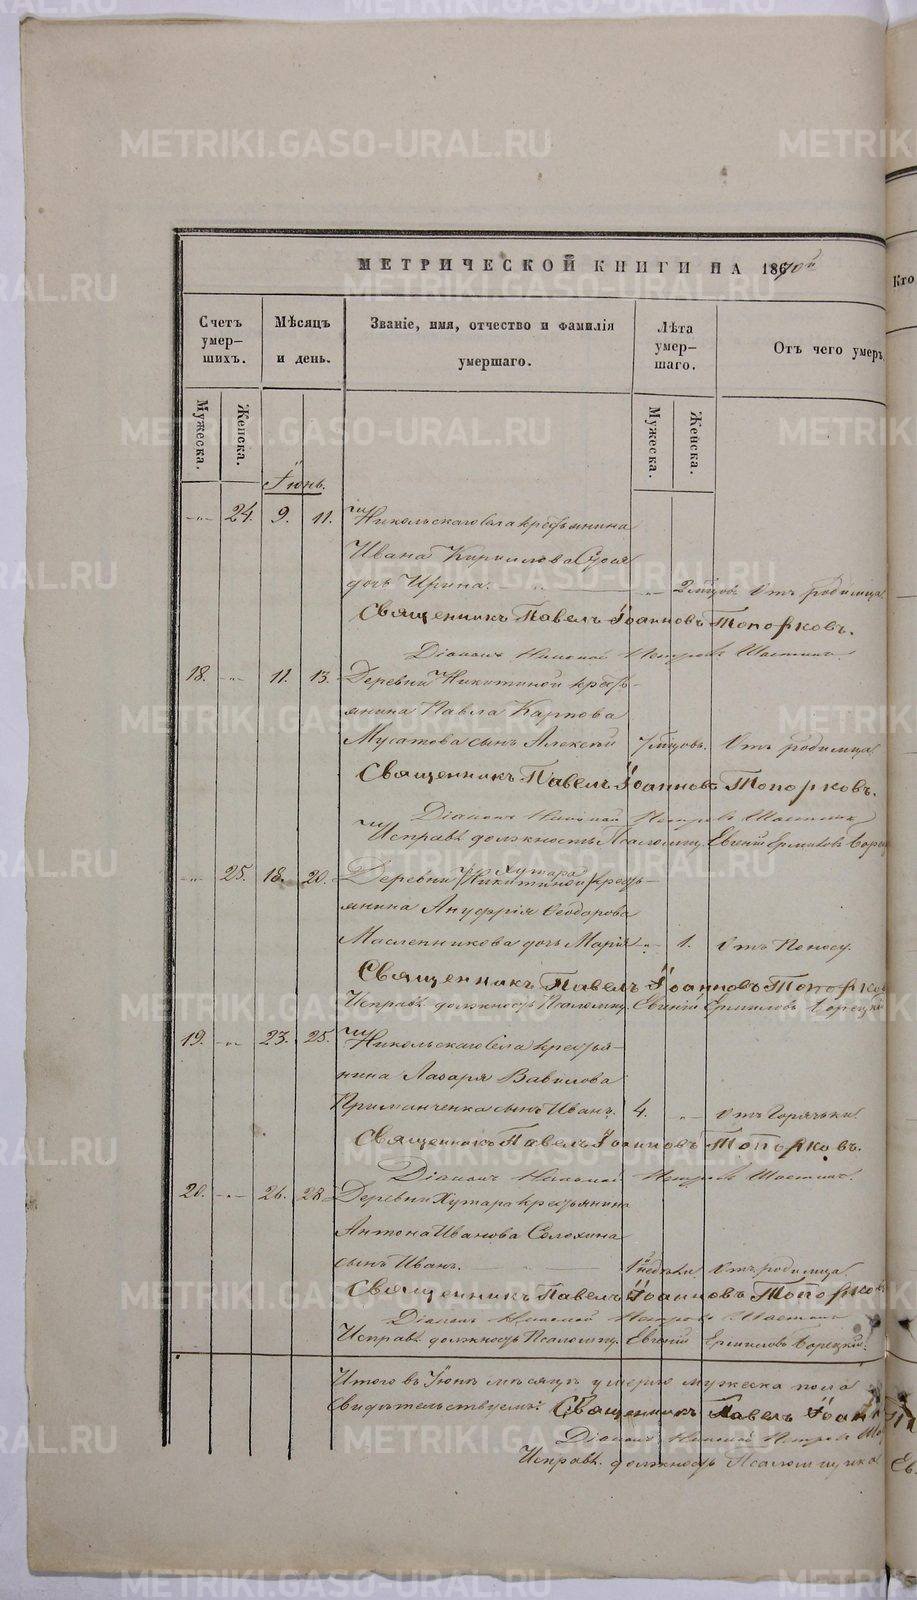 МЕТРИЧЕСКОЙ КНИГИ НА 1870й
Счетъ умер-
шихъ.
Мѣсяцъ
и день.
Званіе, имя, отчество и фамилія
умершаго.
Лѣта
умер-
шаго.
Отъ чего умеръ
Кто
Мужеска.
Женска.
Мужеска.
Женска.
Іюнь.
-"- 24. 9. 11. Никольскаго села крестьянина
Ивана Кириллова
дочь Ирина. -"- 2 мѣцовъ Отъ родимца.
Священникъ Павелъ Іоанновъ Топорковъ.
Діаконъ Николай Петровъ
18. -"- 11. 13. Деревни Никитиной кресть-
янина Павла Карпова
Мусатова сынъ Алексѣй 7 мѣцовъ. Отъ родимца.
Священникъ Павелъ Іоанновъ Топорковъ.
Діаконъ Николай Петровъ
Исправл. должность Псаломщ. Евгеній Ермиловъ
-"- 25. 18. 20. Деревни Хутора (Никитиной) кресть-
янина Ануфрія Ѳеодорова
Масленникова дочь Марія -"- 1. Отъ Поносу.
Священникъ Павелъ Іоанновъ Топорков
Исправл. должность Псаломщ. Евгеній Ермиловъ
19. -"- 23. 25. Никольскаго села крестья-
нина Лазаря Вавилова
Приманченка сынъ Иванъ. 4. -"- Отъ Горячки.
Священникъ Павелъ Іоанновъ Топорковъ.
Діаконъ Николай Петровъ
20. -"- 26. 28. Деревни Хутора крестьянина
Антона Иванова Солохина
сынъ Иванъ. 1 недѣли. Отъ родимца.
Священникъ Павелъ Іоанновъ Топорков
Діаконъ Николай Петровъ
Исправл. должность Псаломщ. Евгеній Ермиловъ
Итого въ Іюнѣ мѣсяцѣ умерло мужеска пола
Свидѣтельствуемъ: Священникъ Павелъ Іоан
Діаконъ Николай Петровъ
Исправл. должность Псаломщика
Ев.
METRIKI.GASO-URAL.RU